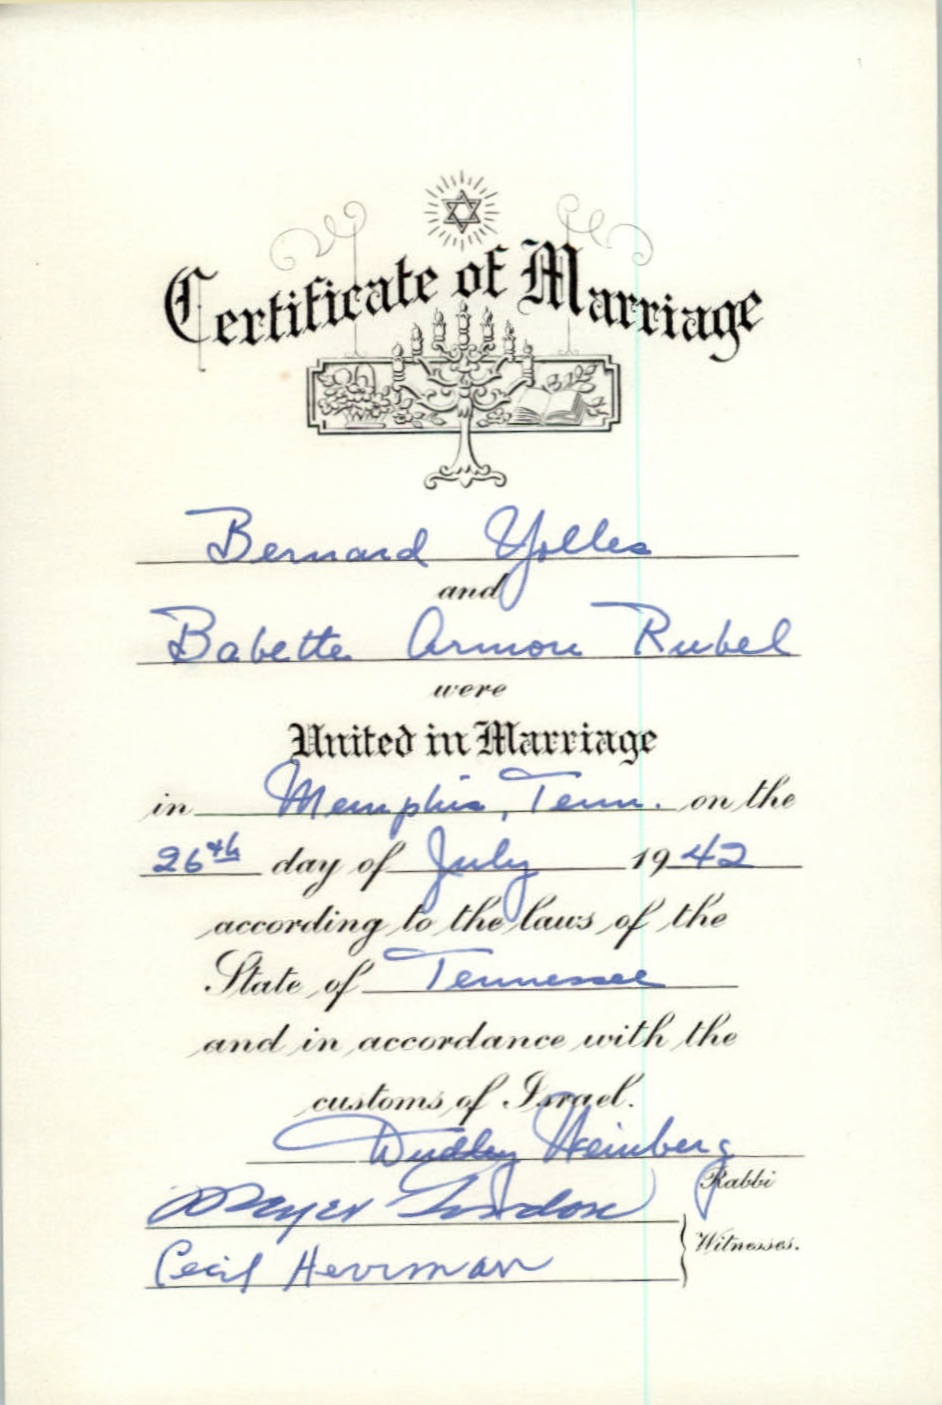 Certificate of Marriage
Bernard Yolles
and
Babette Armon Rubel
were
United in Marriage
in Memphis, Tenn. on the
26th day of July 1942
according to the laws of the
State of Tennessee
and in accordance with the
customs of Israel.
Dudley Weinberg
Rabbi
Mayer London
Witnesses.
Cecil Herrman